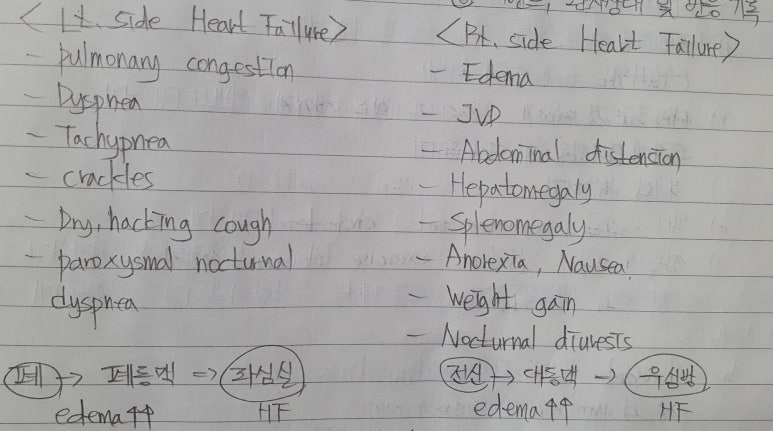 및 반응 기록
< Lt. side Heart Failure >
- pulmonary congestion
- Dyspnea
- Tachypnea
- crackles
- Dry, hacking cough
- paroxysmal nocturnal
dyspnea
폐 → 폐동맥 => 좌심실
edema↑↑ HF
< Rt. side Heart Failure >
- Edema
- JVD
- Abdominal distension
- Hepatomegaly
- Splenomegaly
- Anorexia, Nausea
- Weight gain
- Nocturnal diuresis
전신 → 대동맥 → 우심방
edema↑↑ HF